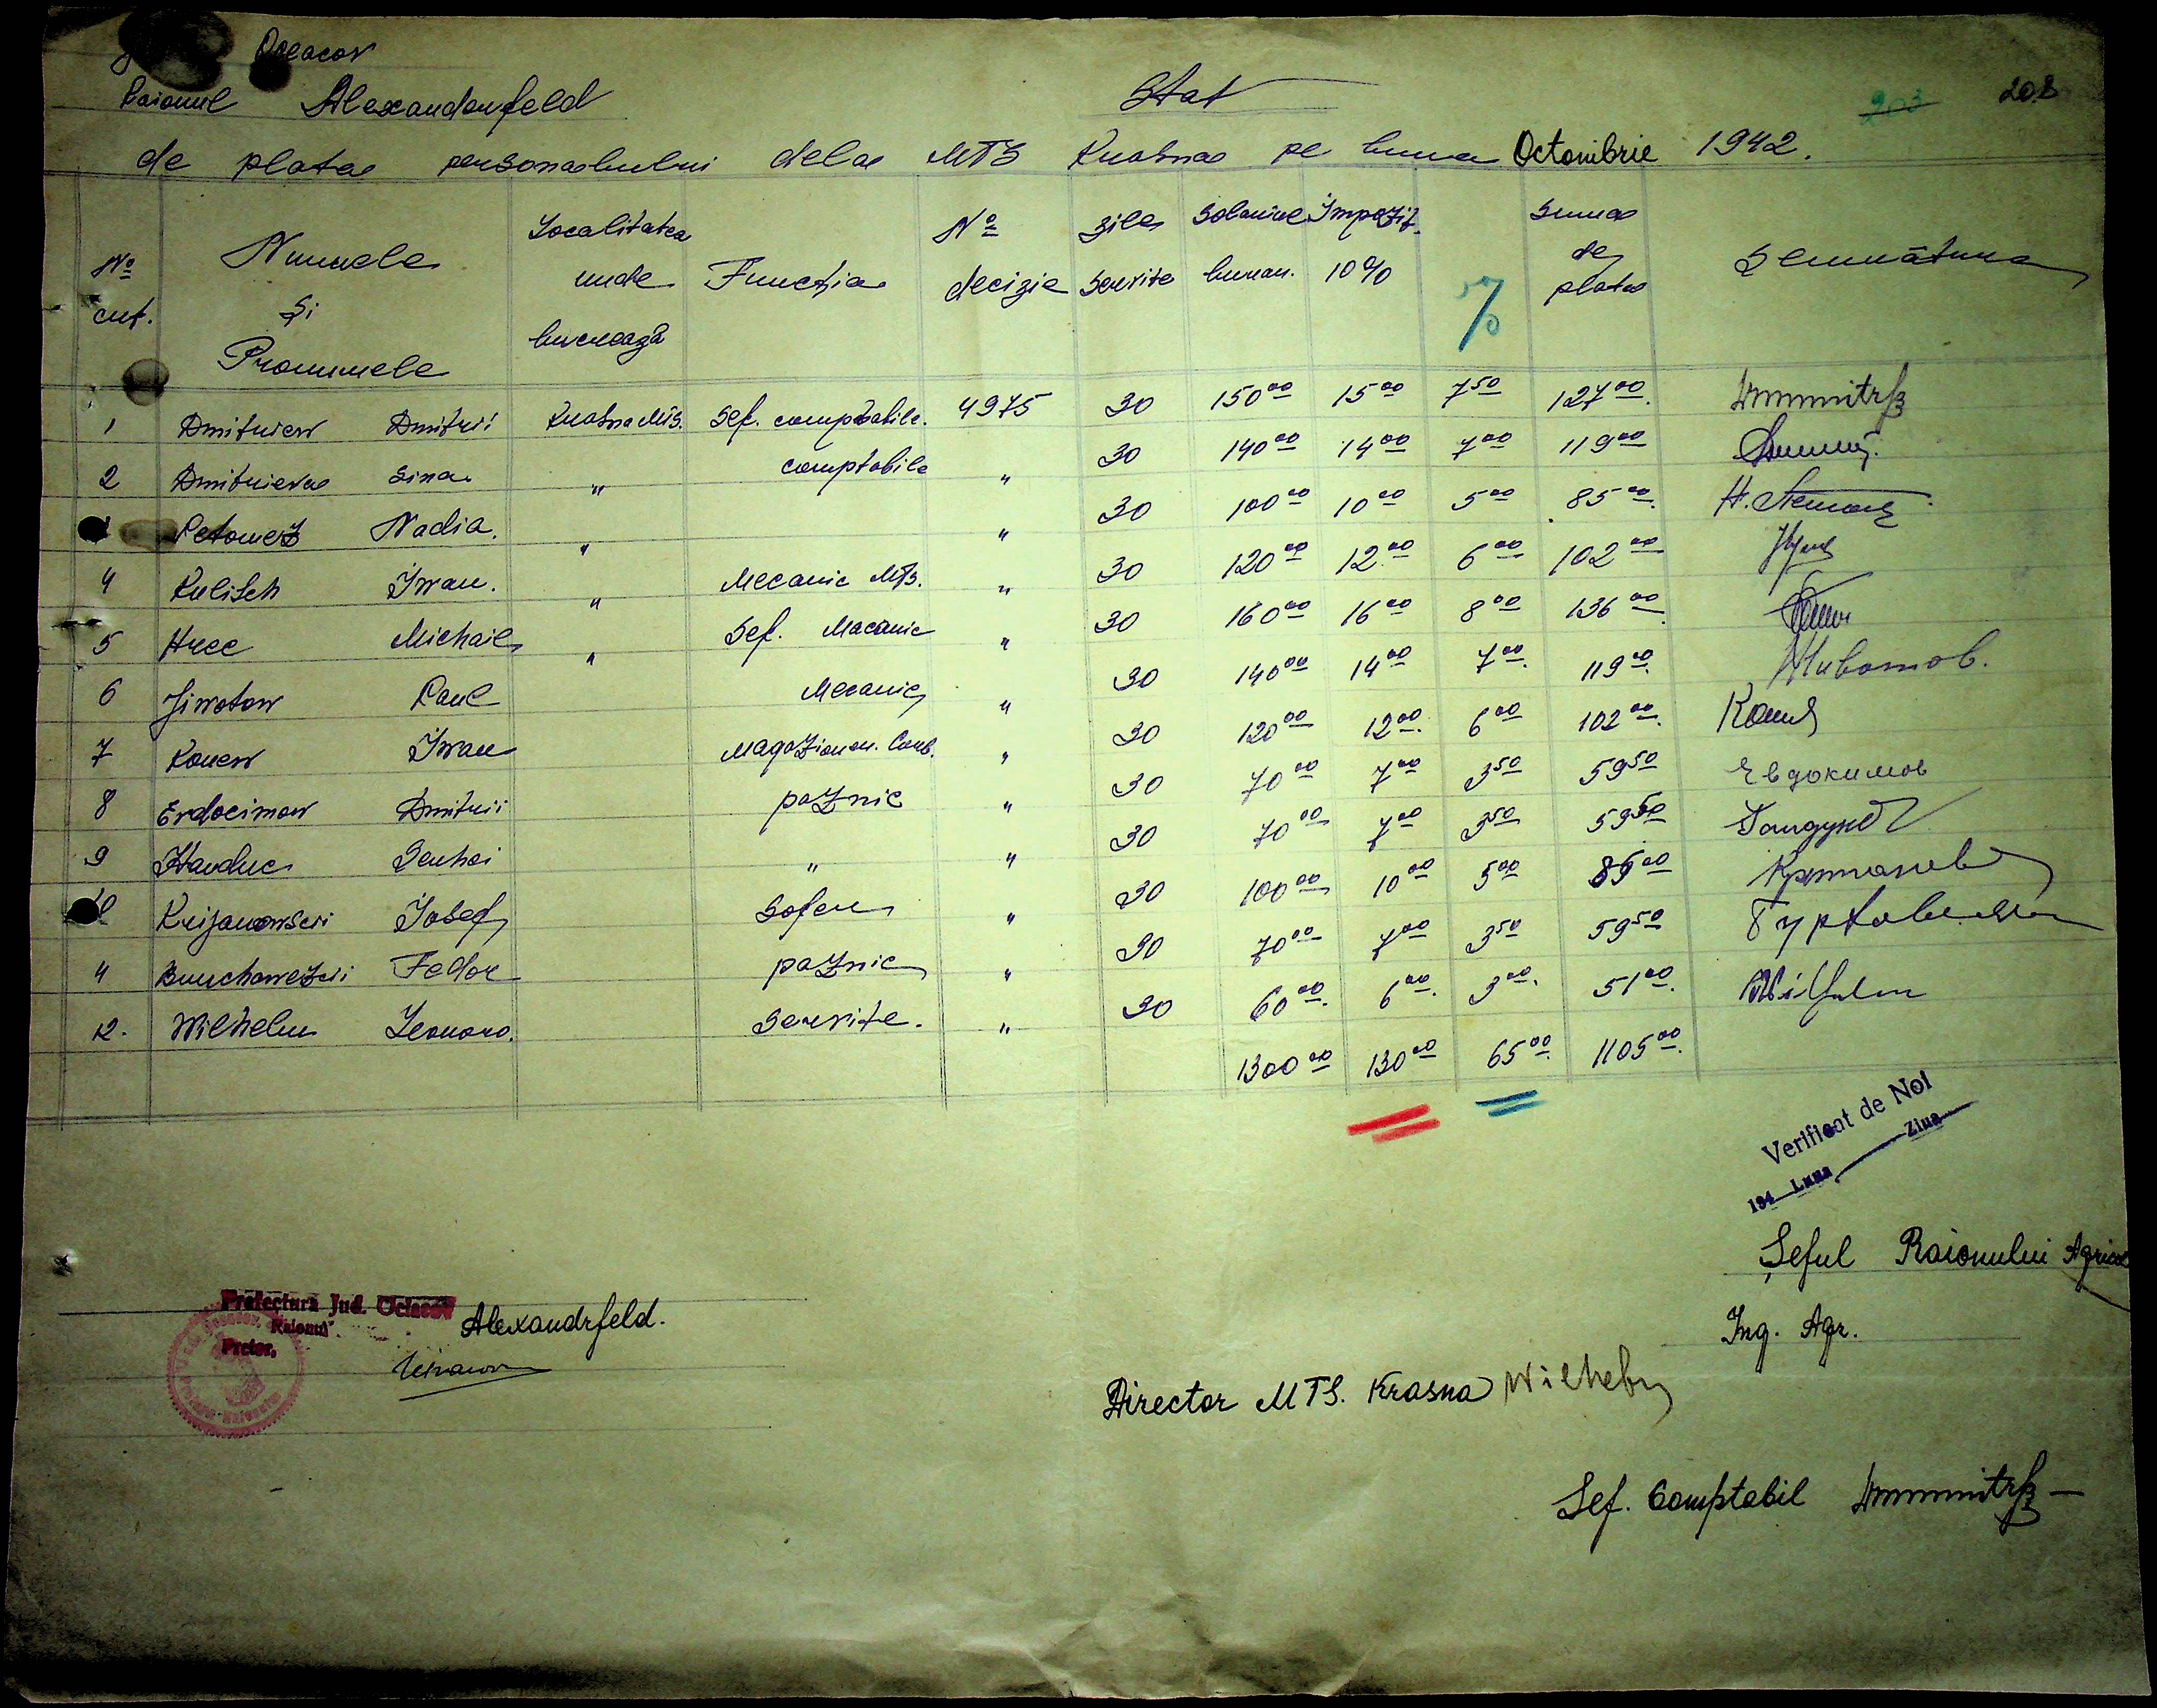 Oceacov
Raionul Alexanderfeld
Stat
203 208
de plata personalului dela MTS Krasna pe luna Octombrie 1942.
No crt. Numele Și Pronumele Localitatea unde lucrează Funcția No decizie zile servite Solariul lunar. Impozit. 10% % Suma de plata Semnătura
1 Dmitriew Dmitrii Krasna MTS. Șef. comptabile. 4975 30 150 00 15 00 7 50 127 00.
2 Dmitrieva Sina " comptabile " 30 140 00 14 00 7 00 119 00
Nadia. " " 30 100 00 10 00 5 00 85 00.
4 Kulisch Iwan. " Mecanic MTS. " 30 120 00 12 00 6 00 102 00
5 Michail " Șef. Macanic " 30 160 00 16 00 8 00 136 00.
6 Jiwotow Paul Mecanic " 30 140 00 14 00 7 00. 119 00. Животов.
7 Konew Iwan Magazioner. Comb. " 30 120 00 12 00. 6 00 102 00.
8 Evdocimow Dmitrii paznic " 30 70 00 7 00 3 50 59 50 Евдокимов
9 Handuc Serhei " " 30 70 00 7 00 3 50 59 50
10 Krijanowscri Josef Sofer " 30 100 00 10 00 5 00 85 00
11 Fedor paznic " 30 70 00 7 00 3 50 59 50
12. Wilhelm Leonora. Servite. " 30 60 00. 6 00. 3 00. 51 00. Wilhelm
1300 00 130 00 65 00. 1105 00.
Verificat de Noi
194 Luna Ziua
Șeful Raionului Agricol
Ing. Agr.
Prefectura Jud. Ociacov
Raionul Alexandrfeld.
Pretor,
Director MTS. Krasna Wilhelm
Șef. Comptabil